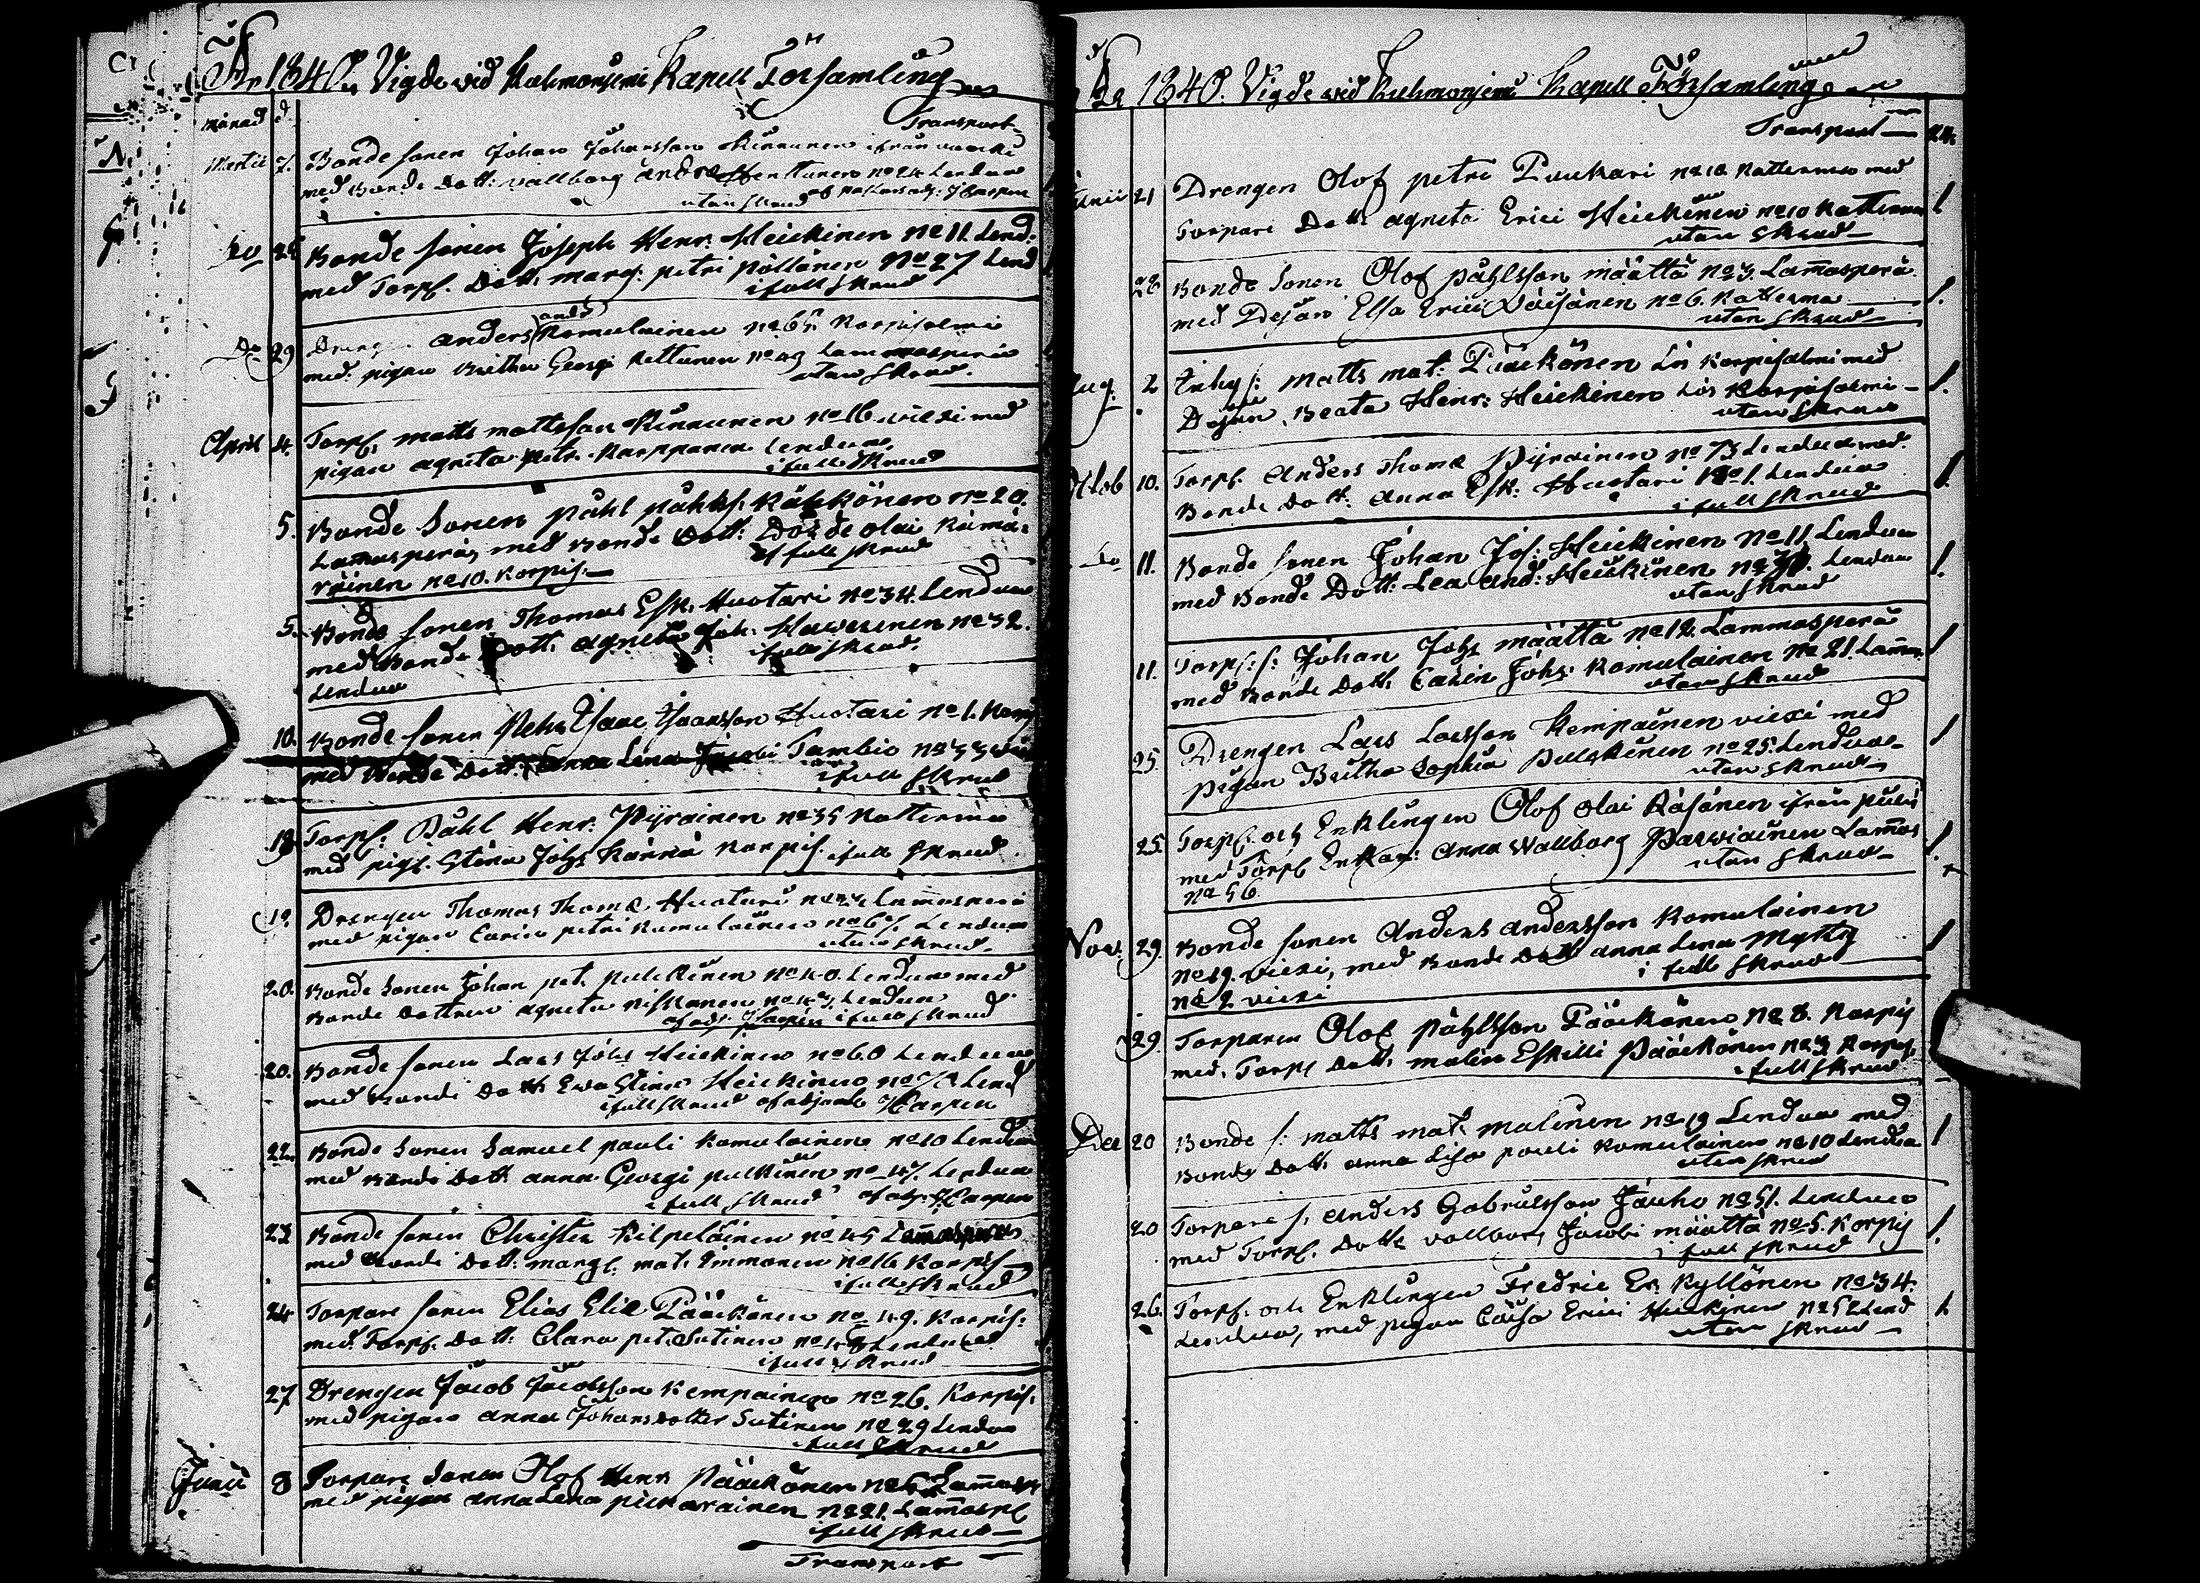 År 1840. Vigde vid Kuhmoniemi Kapell Församling
Månad d.
Transport
Martii 7. Bonde sonen Johan Johansson Kinnunen ifrån
med Bonde Dott: Wallborg Kettunen no 24 Lendua
utan skrud
do Bonde sonen Joseph Henr: Heickinen no 11. Lend:
med Torp. Dott: Marg: Petri Pöllänen No 27 Lend
i full skrud
Do 29 Dreng Anders And: Romulainen no 65 Korpisalmi
med pigan Britha Georgi Kettunen no 49 Lammasperä
utan skrud.
April 4. Torp. Matts Mattsson Kinnunen no 16 Viexi med
pigan Agneta Petr: Karppanen Lendua
i full skrud
5. Bonde sonen Påhl Påhls: Räckönen no 20.
Lamasperä, med Bonde Dott: Dorde Olai Kämä-
räinen no 10. Korpis.
i full skrud
5. Bonde sonen Thomas Esk: Huotari no 34. Lendua
med Bonde Dott: Agneta Joh: Hawerinen no 32.
Lendua
i full skrud.
10. Bonde sonen Pehr Isaac Isacsson Huotari no 1. Korp
med Bonde Dott: Anna Lena Jacobi Tambio no 33
i full skrud
Torp: Påhl Henr: Pyrainen no 35 Katterma
med pig. Stina Johs Kärnä Korpis. i full skrud
19. Drengen Thomas Thomæ Huotari Lamasperä
med pigan Carin Petri Romulainen no 67. Lendua
utan skrud
20. Bonde sonen Johan Pet. Pulckinen no 40. Lendua med
Bonde Dottren Agneta Niskanen Lendua
i full skrud
20. Bonde sonen Lars Johs Heickinen no 60 Lendua
med Bonde Dott: Ewa Stina Heickinen Lend
i full skrud af adjunct
22. Bonde sonen Samuel Pauli Romulainen no 10 Lendua
med Bonde Dott: Anna Georgi Pulkkinen no 47. Lendua
i full skrud
23. Bonde sonen Christer Kilpeläinen no 45 Lammasperä
med Bonde Dott: Marg. Mat: Immonen no 16 Korpis
i full skrud
24. Torpare sonen Elias Eliæ Pääckönen no 49. Korpis:
med Torp. Dott: Clara Pet: Sutinen Lendua
i full skrud
27 Drengen Jacob Jacobsson Kempainen no 26. Korpis.
med pigan Anna Johansdotter Sutinen no 29 Lendua
i full skrud
Junii 8 Torpare sonen Olof Henr: Pääckönen no 6 Lammasp
med pigan Anna Lena Pickarainen no 21. Lamasp
i full skrud
Transport
År 1840. Vigde vid Kuhmoniemi Kapell Församling
Transport
Junii 21 Drengen Olof Petri Puukari no 18 Katterma med
Torpare Dott: Agneta Erici Heickinen no 10 Katterma 1
utan skrud
28 Bonde sonen Olof Påhlsson Määttä no 3 Lamasperä
med Dejan Elsa Erici Väisänen no 6. Katterma 1.
utan skrud
Aug. 2 Inhys: Matts Mat: Pääckönen Korpisalmi med
Dejan Beata Henr: Heickinen Korpisalmi 1.
utan skrud
Octob 10. Torp. Anders Thomæ Pyrainen no 73 Lendua med
Bonde Dott: Anna Esk: Huotari no 1. Lendua 1.
i full skrud
Do 11. Bonde sonen Johan Jos: Heickinen no 11. Lendua
med Bonde Dott: Lea And: Heickinen Lendua 1.
utan skrud
11. Torp: s: Johan Johs Määttä no 12. Lammasperä
med Bonde Dott: Carin Johs Romulainen no 21. Lamm: 1
utan skrud
25. Drengen Lars Larsson Kempainen Viexi med
pigan Britha Sophia Pulckinen no 25. Lendua 1
utan skrud
25. Torp. och Enklingen Olof Olai Räsänen ifrån
med Torp Enkan: Anna Wallborg Parwiainen Lamas
no 56
utan skrud 1.
Nov. 29. Bonde sonen Anders Andersson Romulainen
no 19. Viexi, med Bonde Dott Anna Lena Mytty
no 2 Viexi
i full skrud 1
29. Torparen Olof Påhlsson Pääckönen no 8. Korpis
med Torp Dott: Malin Eskilli Pääckönen no 3 Korpis.
i full skrud
Dec 20 Bonde s: Matts Mat: Malinen no 19 Lendua med
Bonde Dott: Anna Lisa Pauli Romulainen no 10 Lendua 1
utan skrud
20 Torpare s. Anders Gabrielsson Jauho no 51. Lendua
med Torp. Dott: Vallborg Jacobi Määttä no 5. Korpis 1.
i full skrud
26. Torp. och Enklingen Fredric Er: Kyllönen no 34.
Lendua, med pigan Caisa Erici Heickinen no 52 Lend 1
utan skrud